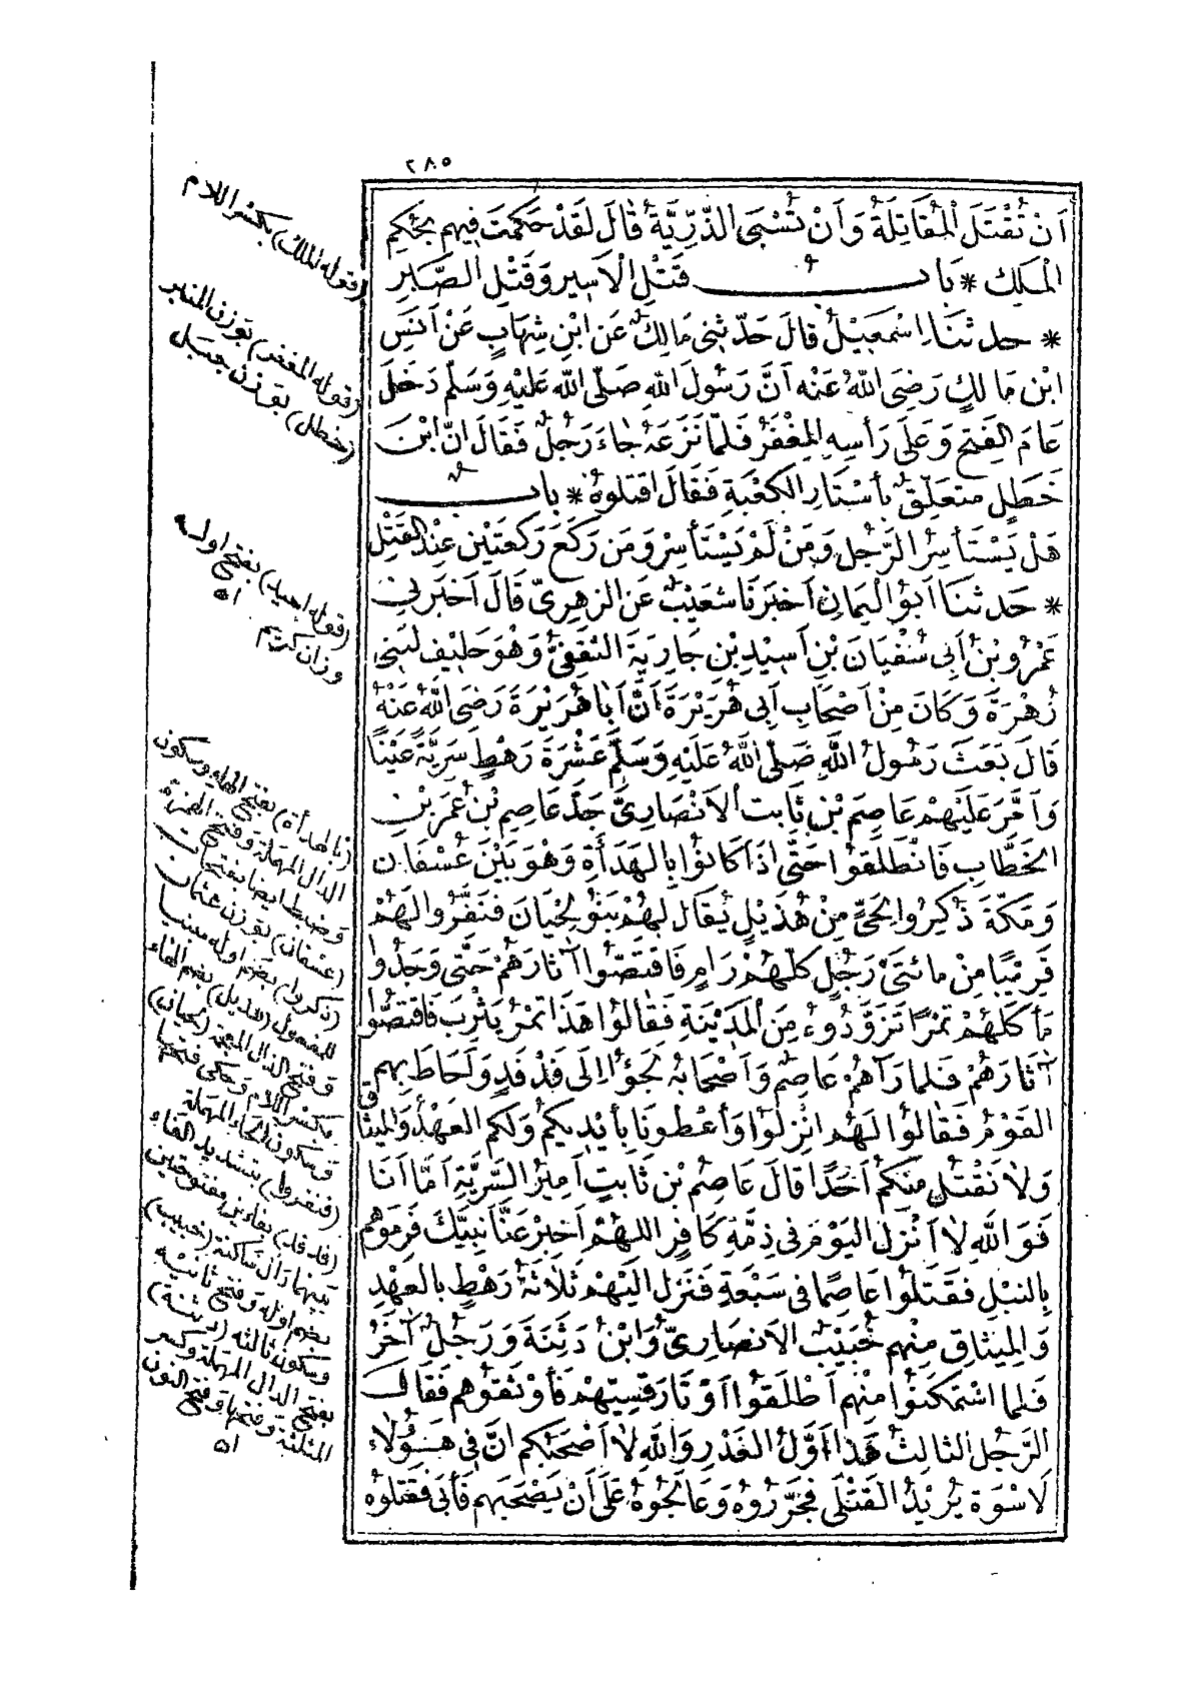 ٢٨٥
اَنْ تُقْتَلَ الْمُقَاتِلَةُ وَاَنْ تُسْبَى الذُّرِّيَّةُ قَالَ لَقَدْ حَكَمْتَ فِيهِم بِحُكْمِ
الْمَلِكِ * بَابُ قَتْلِ الْاَسِيرِ وَقَتْلِ الصَّبْرِ
* حدثنَا اِسْمَعِيلُ قَالَ حَدَّثَنِي مَالِكٌ عَنِ ابْنِ شِهَابٍ عَنْ اَنَسِ
ابْنِ مَالِكٍ رَضِيَ اللّٰهُ عَنْهُ اَنَّ رَسُولَ اللّٰهِ صَلَّى اللّٰه عَلَيْهِ وَسَلَّمَ دَخَلَ
عَامَ الفَتْحِ وَعَلَى رَأْسِهِ الْمِغْفَرُ فَلَمَّا نَزَعَهُ جَاءَ رَجُلٌ فَقَالَ اِنَّ ابْنَ
خَطَلٍ متعَلِّقٌ بأَسْتَارِ الكَعْبَةِ فَقَالَ اقتلوهُ * بابٌ
هَلْ يَسْتَأْسِرُ الرَّجُلُ وَمَنْ لَمْ يَسْتَأْسِرْ وَمَن رَكَعَ رَكْعَتَيْنِ عِنْدَ القَتْلِ
* حَدثنَا اَبُو الْيَمَانِ اَخبَرَنَا شُعَيْبٌ عَنِ الزهرِيِّ قَالَ اَخْبَرَنِي
عَمْرُو بْنُ اَبِي سُفْيَانَ بْنِ اَسِيدِ بْنِ جَارِيَةَ الثَّقَفِيُّ وَهُوَ حَلِيْف لِبَنِي
زُهْرَةَ وَكَانَ مِنْ اَصْحَابِ اَبِي هُرَيْرَةَ اَنَّ اَبَا هُرَيْرَةَ رَضِيَ اللّٰهُ عَنْهُ
قَالَ بَعَثَ رَسُولُ اللّٰهِ صَلَّى اللّٰهُ عَلَيْهِ وَسَلَّمَ عَشْرَةَ رَهْطٍ سَرِيَّةً عَيْنًا
وَاَمَّرَ عَلَيْهِمْ عَاصِمَ بْنَ ثَابِتٍ الْاَنْصَارِيَّ جَدَّ عَاصِمِ بْنِ عُمَرَ بْنِ
الخَطَّابِ فَانْطَلَقُوا حَتَّى اِذَا كَانُوا بِالْهَدَأَةِ وَهُوَ بَيْنَ عُسْفَانَ
وَمَكَّةَ ذُكِرُوا لِحَيٍّ مِنْ هُذَيْلٍ يُقَالُ لَهُمْ بَنُو لِحْيَانَ فَنَفَّرُوا لَهُمْ
قَرِيْبًا مِنْ مائتَيْ رَجُلٍ كلّهُمْ رَامٍ فَاقْتَصُّوا آثارَهُمْ حَتَّى وَجَدُوا
مَأْكَلَهُمْ تمرًا تَزَوَّدُوهُ مِنَ الْمَدِيْنَةِ فَقَالوا هَذَا تمْرُ يَثْرِبَ فَاقتصُّوا
آثَارَهُمْ فَلما رَآهُمْ عَاصِمٌ وَاَصْحَابُهُ لَجَؤُا اِلَى فَدْفَدٍ وَاَحَاطَ بِهِم
القَوْمُ فَقَالُوا لَهُم انْزِلوا وَاَعْطُونَا بِأَيْدِيكُم وَلَكُم العَهْدُ وَالْمِيثَاقُ
وَلَا نَقْتُلُ مِنكُم اَحَدًا قَالَ عَاصِمُ بْن ثَابِتٍ اَمِيْرُ السَّرِيَّةِ اَمَّا اَنَا
فَوَاللّٰهِ لَا اَنْزِلُ اليَوْمَ فِي ذِمَّةِ كَافِرٍ اللهُمَّ اَخْبِرْ عَنَّا نَبِيَّكَ فَرَمَوْهُم
بِالنبْلِ فَقَتَلُوا عَاصِمًا فِي سَبْعَةٍ فَنَزَلَ اِلَيْهِمْ ثَلَاثَةُ رَهْطٍ بِالعَهْدِ
وَالْمِيثَاقِ مِنْهُم خُبَيْبٌ الاَنصَارِيُّ وَابْنُ دَثِنَةَ وَرَجُلٌ آخَرُ
فَلما اسْتَمكَنُوا مِنْهُم اَطْلَقُوا اَوْتَارَ قِسِيِّهِمْ فَأَوْثَقُوهُم فَقَالَ
الرَّجُلُ الثَالِثُ هَذَا اَوَّلُ الغَدْرِ وَاللّٰهِ لَا اَصْحَبُكُم اِنَّ فِي هَؤُلَاءِ
لَاُسْوَةً يُرِيْدُ القَتْلَى فَجَرَّرُوهُ وَعَالَجُوهُ عَلَى اَنْ يَصْحَبَهُم فَأَبَى فَقَتَلُوهُ
(قوله الملك) بكسْر اللام
(قوله المغفر) بوَزن المنبر
(خطل) بوَزن جبَل
(قوله اسيد) بفتح اوله
وزان كريم اه
(بالهدأة) بفتح الهاء وسكون
الدال المهملة وفتح الهمزة
وضبط ايضا بفتحات
(عسفان) بوزن عثمان
(ذكروا) بضم اوله مبنيا
للمفعول (هذيل) بضم الهاء
وفتح الذال المعجمة (لحيان)
بكسْر اللام وحكى فتحها
وسكون الحاء المهملة
(فنفروا) بتشديد الفاء
(فدفد) بفاءين مفتوحتين
بينهما دال ساكنة (خبيب)
بضم اوله وفتح ثانيه
وسكون ثالثه (دثنة)
بفتح الدال المهملة وكسر
المثلثة وفتحها وفتح النون
اه